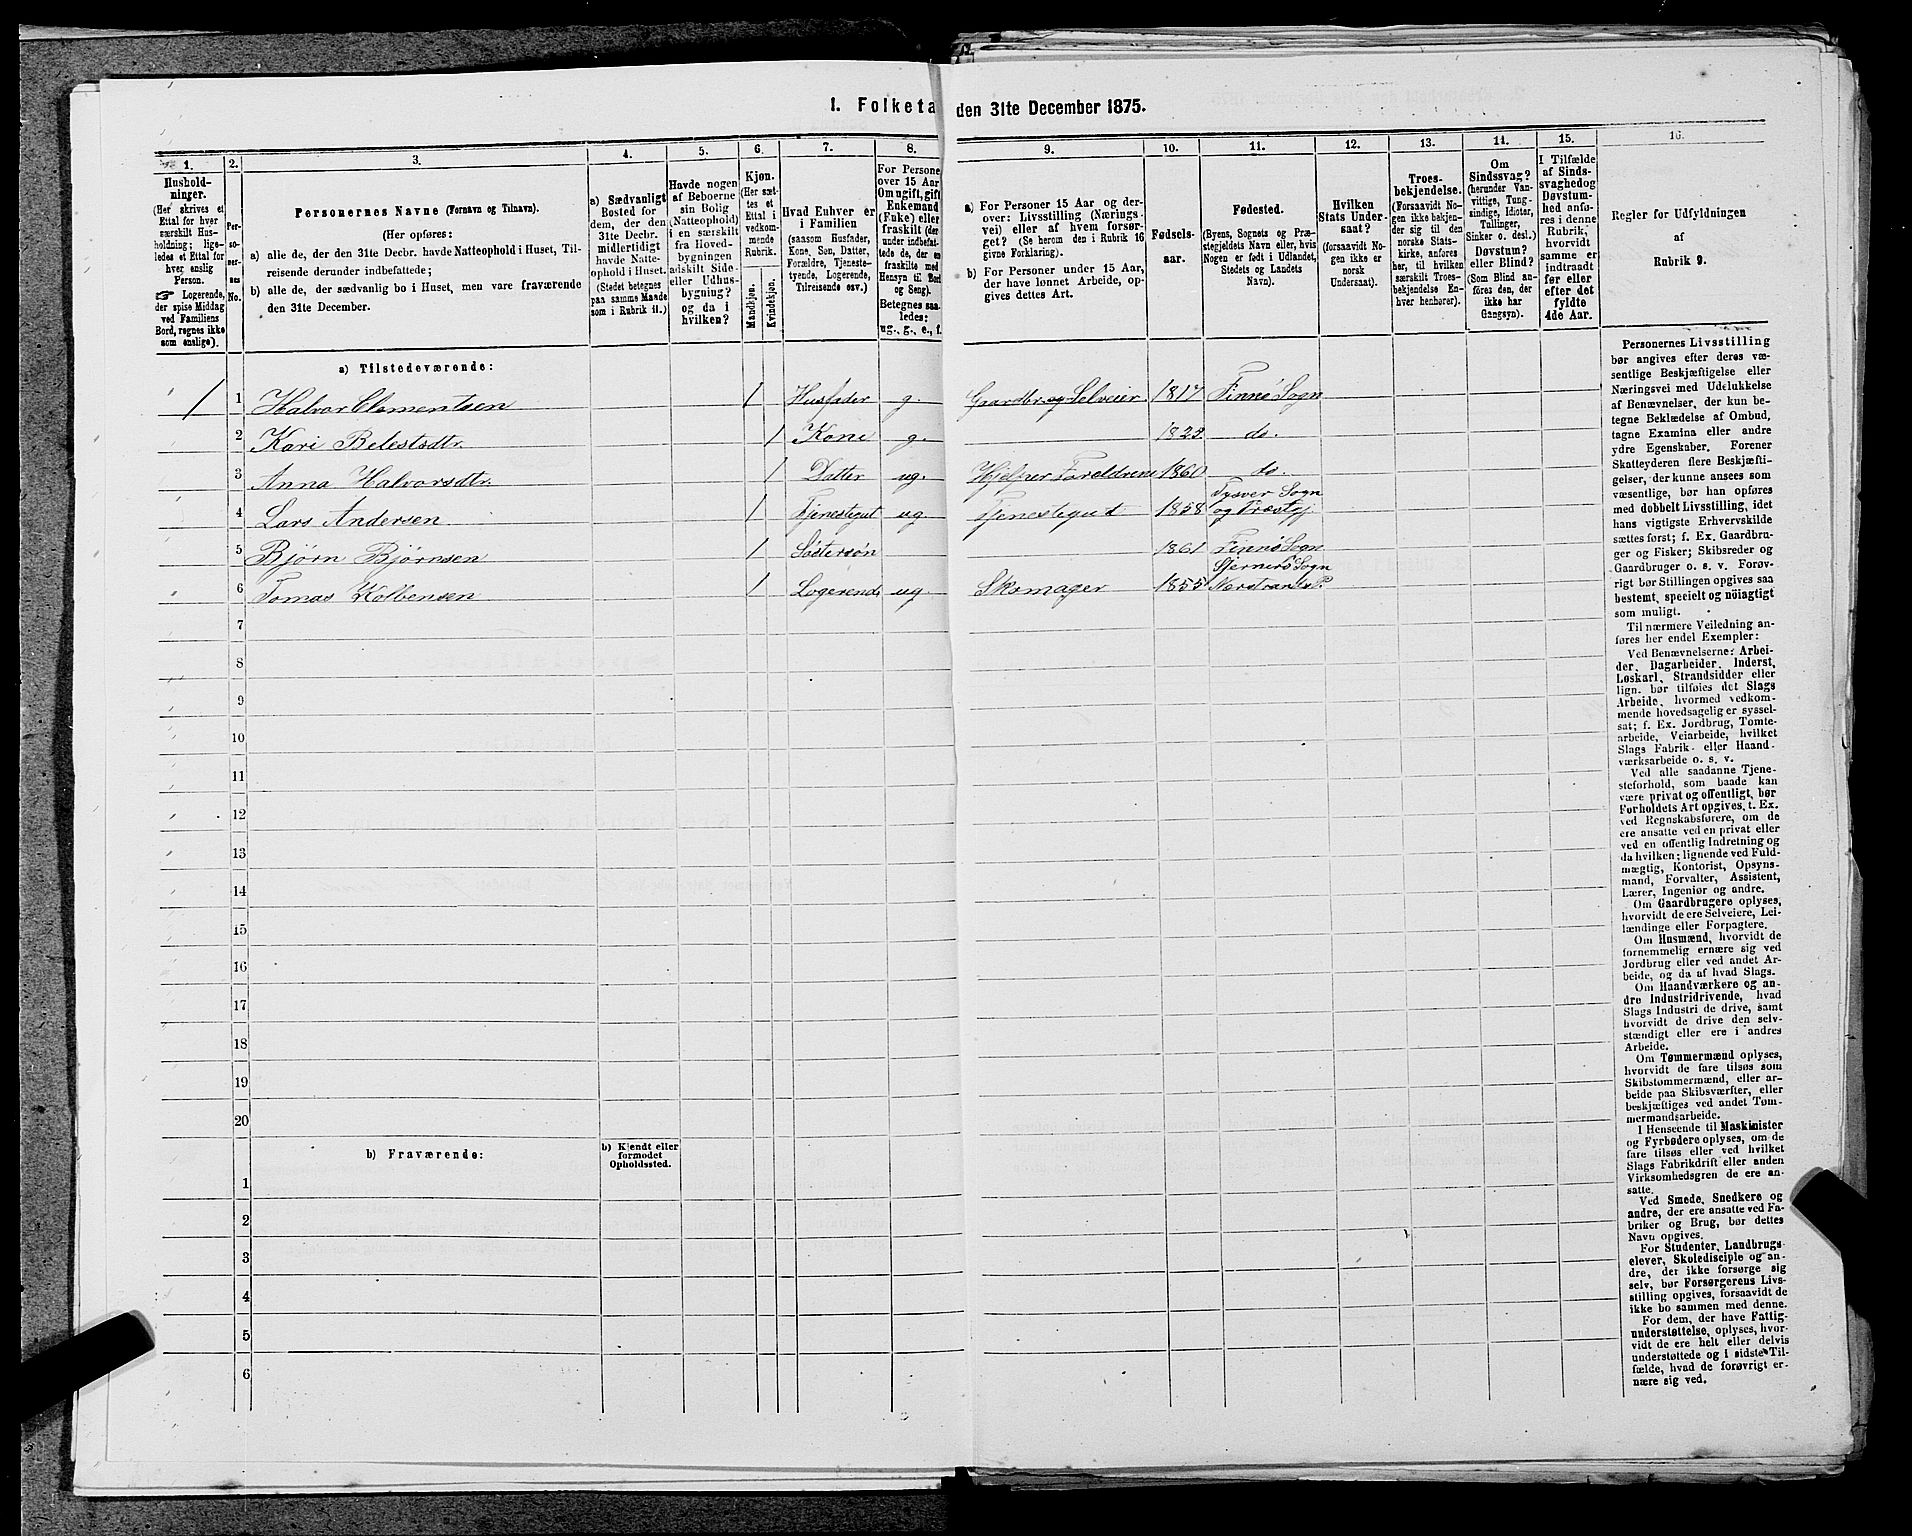 1. Folketa den 31te December 1875.
1. 2. 3. 4. 5. 6. 7. 8. 9. 10. 11. 12. 13. 14. 15. 16.
Husholdninger.
(Her skrives et
Ettal for hver
særskilt Husholdning;
ligeledes et Ettal for
hver enslig
Person.
☞ Logerende,
der spise Middag
ved Familiens
Bord, regnes ikke
som enslige).
Personernes No.
Personernes Navne (Fornavn og Tilnavn).
(Her opføres:
a) alle de, der den 31te Decbr. havde Natteophold i Huset, Tilreisende
derunder indbefattede;
b) alle de, der sædvanlig bo i Huset, men vare fraværende
den 31te December.
a) Sædvanligt
Bosted for
dem, der den
31te Decbr.
midlertidigt
havde Natteophold
i Huset.
(Stedet betegnes
paa samme Maade
som i Rubrik 11.)
Havde nogen
af Beboerne
sin Bolig
(Natteophold)
i en særskilt
fra Hovedbygningen
adskilt Sideeller
Udhusbygning?
og da i
hvilken?
Kjøn.
(Her sættes
et
Ettal i
vedkommende
Rubrik.
Mandkjøn.
Kvindekjøn.
Hvad Enhver er
i Familien
(saasom Husfader,
Kone, Søn, Datter,
Forældre, Tjenestetyende,
Logerende,
Tilreisende osv.)
For Persone
over 15 Aar
Om ugift, gift
Enkemand
(Enke) eller
fraskilt (der
under indbefattede
de, der er
fraskilte med
Hensyn til Bord
og Seng).
Betegnes saaledes:
ug., g., e., f.
a) For Personer 15 Aar og derover:
Livsstilling (Næringsvei)
eller af hvem forsørget?
(Se herom den i Rubrik 16
givne Forklaring).
b) For Personer under 15 Aar,
der have lønnet Arbeide, opgives
dettes Art.
Fødselsaar.
Fødested.
(Byens, Sognets og Præstegjeldets
Navn eller, hvis
Nogen er født i Udlandet,
Stedets og Landets
Navn).
Hvilken
Stats Undersaat?
(forsaavidt Nogen
ikke er
norsk
Undersaat).
Troesbekjendelse.
(Forsaavidt Nogen
ikke bekjender
sig til den
norske Statskirke,
anføres
her, til hvilken
særskilt Troesbekjendelse
Enhver
henhører).
Om
Sindssvag?
(herunder Vanvittige,
Tungsindige,
Idioter,
Tullinger,
Sinker o. desl.)
Døvstum?
eller Blind?
(Som Blind anføres
den, der
ikke har
Gangsyn).
I Tilfælde
af Sindssvaghed
og
Døvstumhed
anføres
i denne
Rubrik,
hvorvidt
samme er
indtraadt
før eller
efter det
fyldte
4de Aar.
Regler for Udfyldningen
af
Rubrik 9.
a) Tilstedeværende:
1 1 Halvor Clementsen 1 Husfader g. Gaardbr. og Selveier 1817 Finnø Sogn
2 Kari Belestsdtr. 1 Kone g. 1822 do.
3 Anna Halvorsdtr. 1 Datter ug. Hjelper Foreldrene 1860 do.
4 Lars Andersen 1 Tjenestegut ug. Tjenestegut 1858 Tysver Sogn
og Præstgj
5 Bjørn Bjørnsen 1 Søstersøn 1861 Finnø Sogn
6 Tomas Kolbensen 1 Logerende ug. Skomager 1855 Sjernerø Sogn
Norstrands P.
7
8
9
10
11
12
13
14
15
16
17
18
19
20
b) Fraværende:
b) Kjendt eller
formodet
Opholdssted.
1
2
3
4
5
6
Personernes Livsstilling
bør angives efter deres væsentlige
Beskjæftigelse eller
Næringsvei med Udelukkelse
af Benævnelser, der kun betegne
Beklædelse af Ombud,
tagne Examina eller andre
ydre Egenskaber. Forener
Skatteyderen flere Beskjæftigelser,
der kunne ansees som
væsentlige, bør han opføres
med dobbelt Livsstilling, idet
hans vigtigste Erhvervskilde
sættes først; f. Ex. Gaardbruger
og Fisker; Skibsreder og
Gaardbruger o. s. v. Forøvrigt
bør Stillingen opgives saa
bestemt, specielt og nöiagtigt
som muligt.
Til nærmere Veiledning anføres
her endel Exempler:
Ved Benævnelserne: Arbeider,
Dagarbeider, Inderst,
Løskarl, Strandsidder eller
lign. bør tilføies det Slags
Arbeide, hvormed vedkommende
hovedsagelig er sysselsat;
f. Ex. Jordbrug, Tomtearbeide,
Veiarbeide, hvilket
Slags Fabrik- eller Haandværksarbeide
o. s. v.
Ved alle saadanne Tjenesteforhold,
som baade kan
være privat og offentligt, bør
Forholdets Art opgives, t. Ex.
ved Regnskabsførere, om de
ere ansatte ved en privat eller
ved en offentlig Indretning og
da hvilken; lignende ved Fuldmægtig,
Kontorist, Opsynsmand,
Forvalter, Assistent,
Lærer, Ingeniør og andre.
Om Gaardbrugere oplyses,
hvorvidt de ere Selveiere, Leilændinge
eller Forpagtere.
Om Husmænd, hvorvidt de
fornemmelig ernære sig ved
Jordbrug eller ved andet Arbeide,
og da af hvad Slags.
Om Haandværkere og andre
Industridrivende, hvad
Slags Industri de drive, samt
hvorvidt de drive den selvstændigt
eller ere i andres
Arbeide.
Om Tømmermænd oplyses,
hvorvidt de fare tilsøs som
Skibstømmermænd, eller arbeide
paa Skibsværfter, eller
beskjæftiges ved andet Tømmermandsarbeide.
I Henseende til Maskinister
og Fyrbødere oplyses, om de
fare tilsøs eller ved hvilket
Slags Fabrikdrift eller anden
Virksomhedsgren de ere ansatte.
Ved Smede, Snedkere og
andre, der ere ansatte ved Fabriker
og Brug, bør dettes
Navn opgives.
For Studenter, Landbrugselever,
Skoledisciple og andre,
der ikke forsørge sig
selv, bør Forsørgerens Livsstilling
opgives, forsaavidt de
ikke bo sammen med denne.
For dem, der have Fattigunderstøttelse,
oplyses, hvorvidt
de ere helt eller delvis
understøttede og i sidste Tilfælde,
hvad de forøvrigt ernære
sig ved.